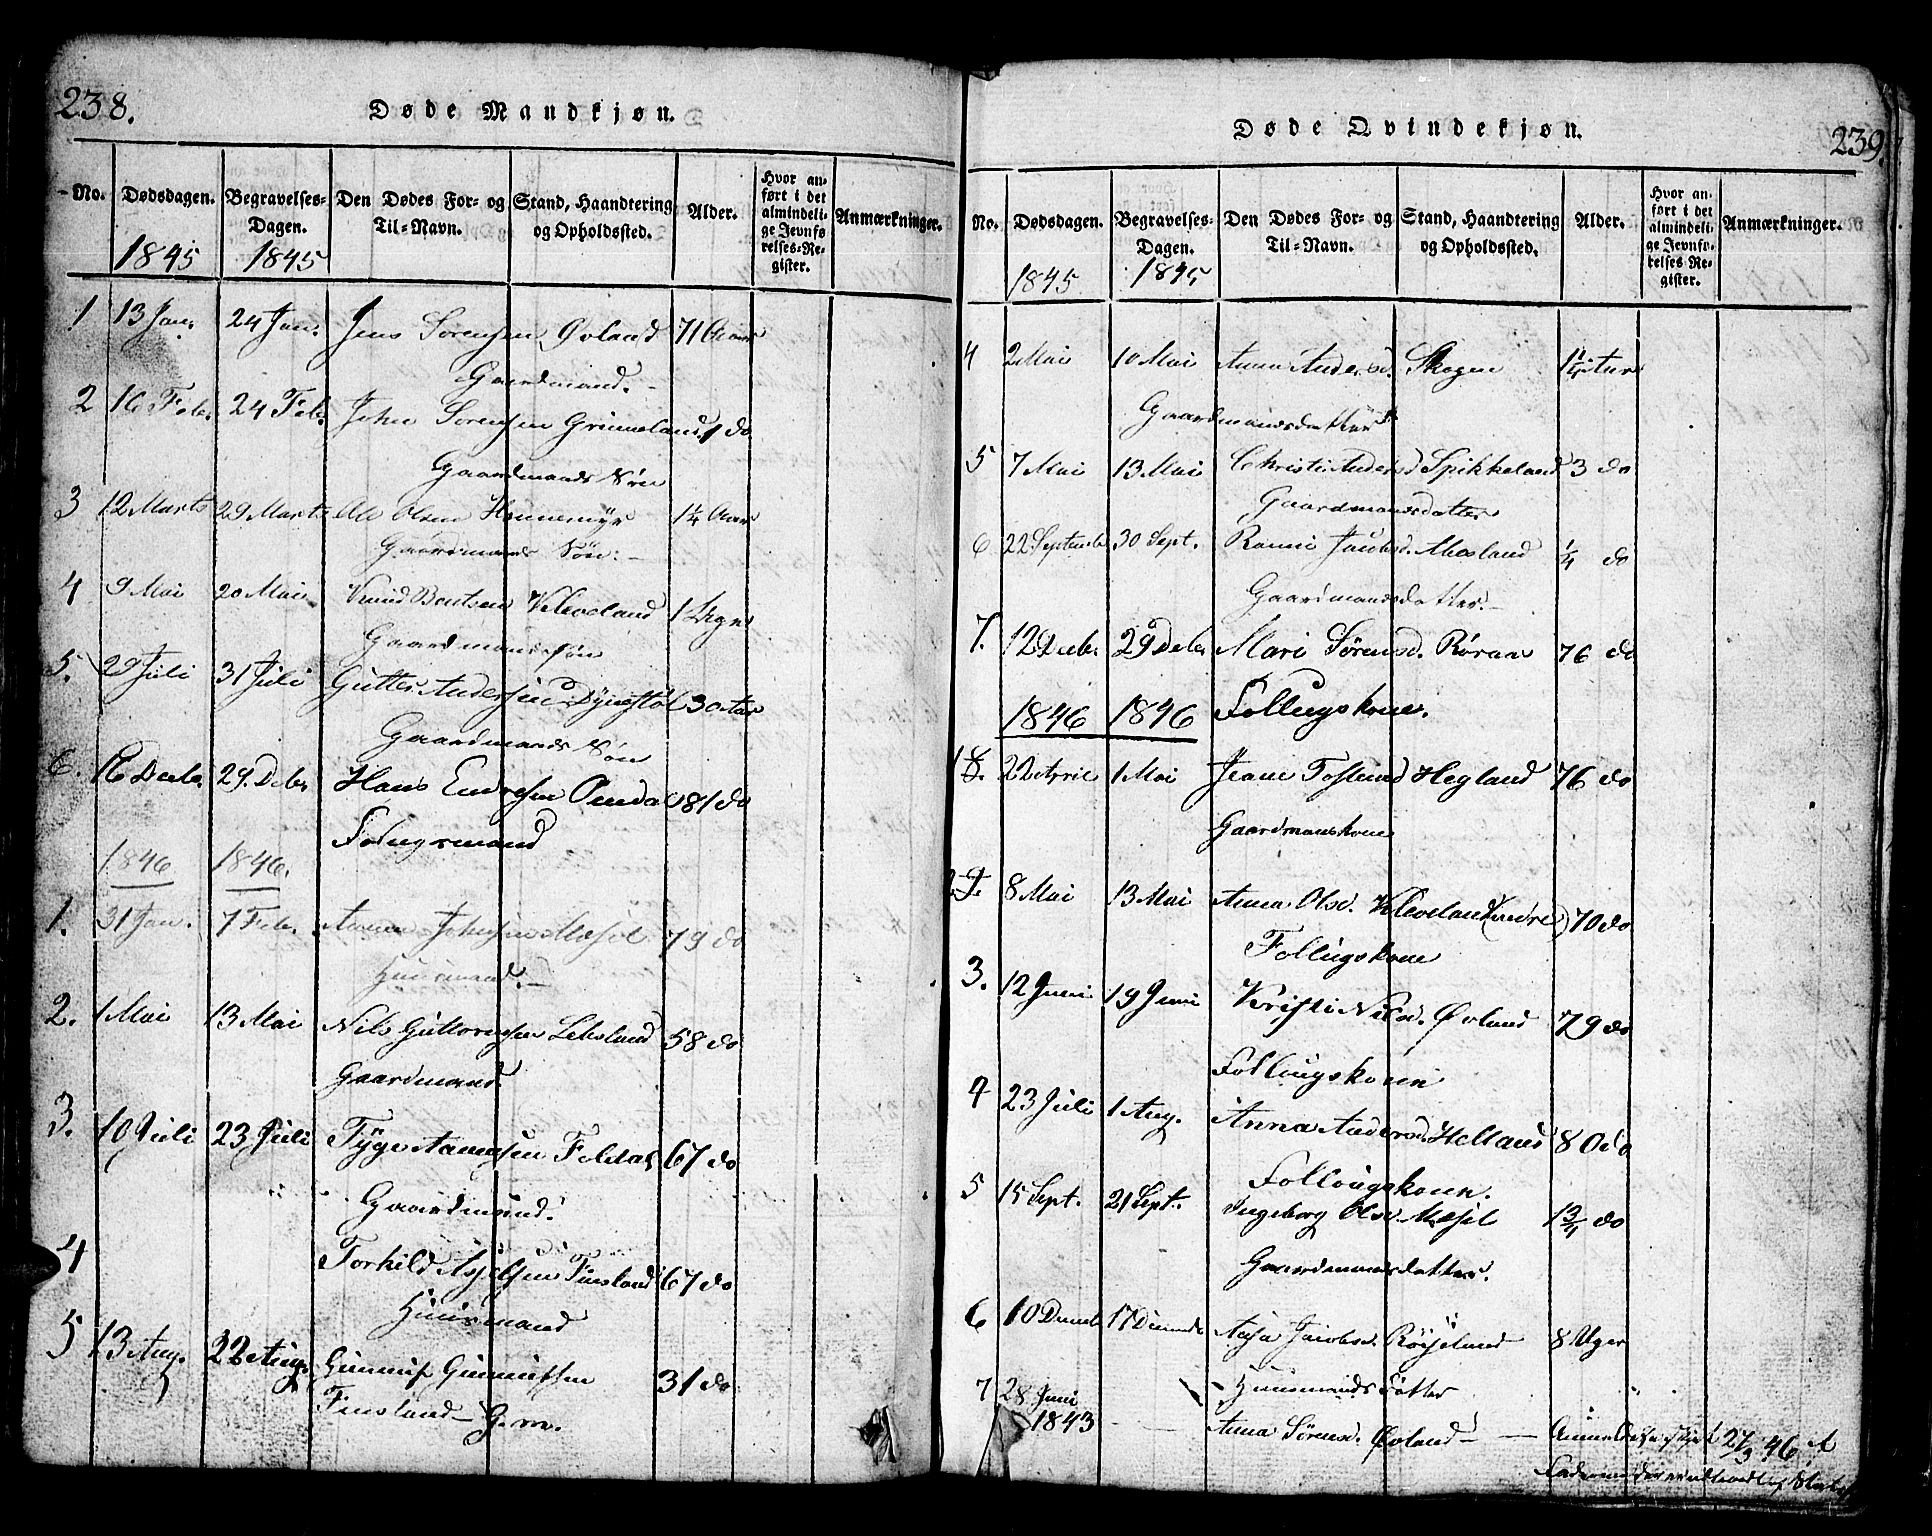 238.
Døde Mandkjøn.
No. Dødsdagen. Begravelses-Dagen. Den Dødes For- og Til-Navn. Stand, Haandtering og Opholdssted. Alder. Hvor anført i det almindelige Jevnførelses-Register. Anmærkninger.
1845 1845
1 13 Jan. 24 Jan. Jens Sørensen Øvland 71 Aar
Gaardmand.
2 16 Febr. 24 Febr. John Sørensen Grimeland 1 do
Gaardmands Søn
3 12 Marts 29 Marts Ole Olsen Honnemyr 1/4 Aar
Gaardmands Søn
4 9 Mai 20 Mai Knud Bentsen Kleveland 1 Degn
Gaardmandssøn
5. 29 Juli 31 Juli Gutter Andersen Dynestøl 30 Aar
Gaardmands Søn
6. 16 Decbr. 29. Decbr Hans Endresen Omdal 81 do
Folugsmand
1846 1846.
1. 31 Jan. 7 Febr. Johnsen Mæsel 79 do
Huusmand.
2. 1 Mai 13 Mai Nils Guttormsen Lebsland 58 do
Gaardmand.
3. 10 Juli 23 Juli Tyge Aanensen Foldal 67 do
Gaardmand.
4 Torkild Asjelsen Finsland 67 do
Huusmand
5 13 Aug. 22 Aug. Gunnuf Gunnufsen 31 do
Finsland G. m.
Døde Qvindekjøn.
239.
No. Dødsdagen. Begravelses-Dagen. Den Dødes For- og Til-Navn. Stand, Haandtering og Opholdssted. Alder. Hvor anført i det almindelige Jevnførelses Register. Anmærkninger.
1845 1845
4 2 Mai 10 Mai Anna Andersd. Skogen 1 1/4 Aar
Gaardmandsdatter
5 7 Mai 13 Mai Christi Andersd Spikkeland 3 do
Gaardmandsdatter
6 22 Septembr 30 Sept. Jacobsd. Mosland 1/4 do
Gaardmandsdatter.
7. 12 Decbr. 29 Decbr Mari Sørensd. Røraas 76 do
1846 1846 Follugskone.
1 22 April 1 Mai Hegland 76 do
Gaardmanskone
2 8 Mai 13 Mai Anna Olsd. Kleveland (nedre) 70 do
Follugskone
3. 12 Juni 19 Juni Kristi Nilsd. Øvland 79 do
Follougskone
4 23 Juli 1 Aug. Anna Andersd. Helland 80 do
Follougskone.
5 15 Sept. 21 Sept. Ingeborg Olsd. Mæsel 13/4 do
Gaardmandsdatter.
6 10 Decmb 17 Decmb Aasa Jacobsd. Røiseland 8 Uger
Huusmands Datter
7 28 Juni
1843 Anna Sørensd. Øvland 27/3 46, at